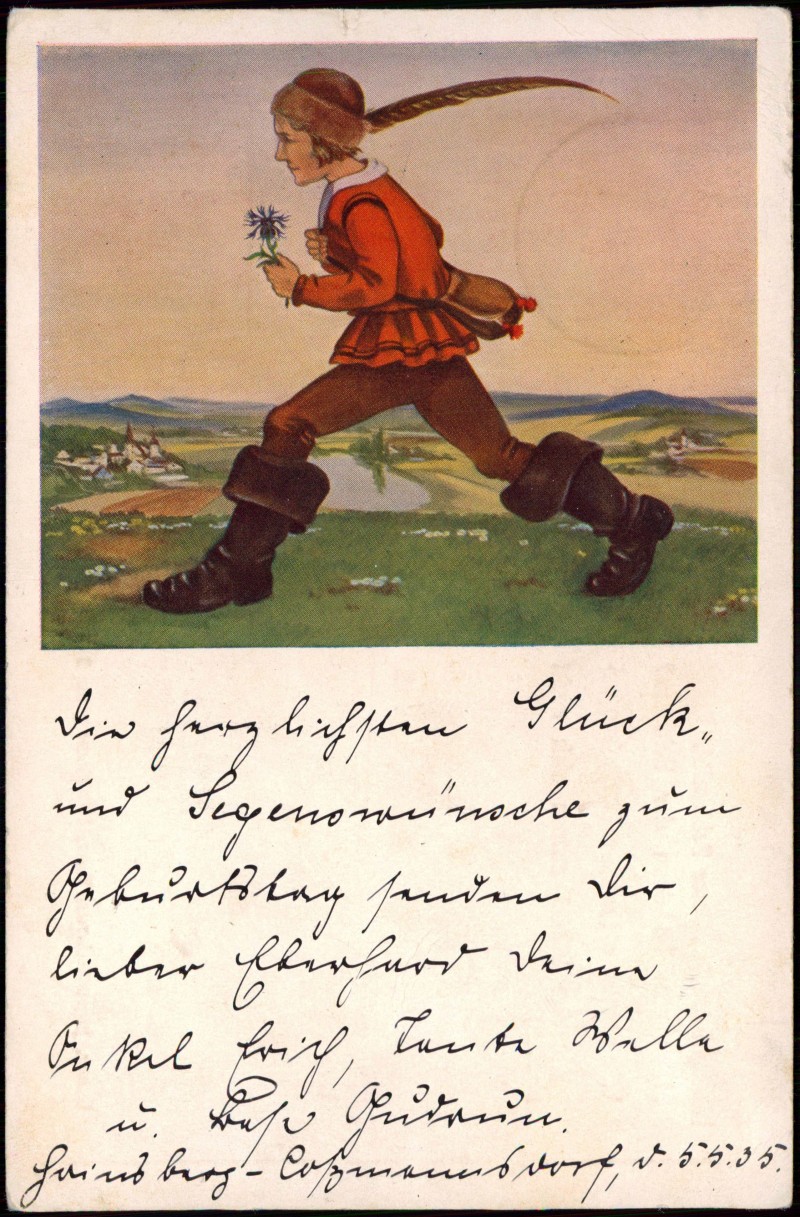 Die herzlichsten Glück„
und Segenswünsche zum
Geburtstag senden Dir,
lieber Eberhard Deine
Onkel Erich, Tante Wella
u. Base Gudrun.
Hainsberg-Coßmannsdorf, d. 5.5.35.